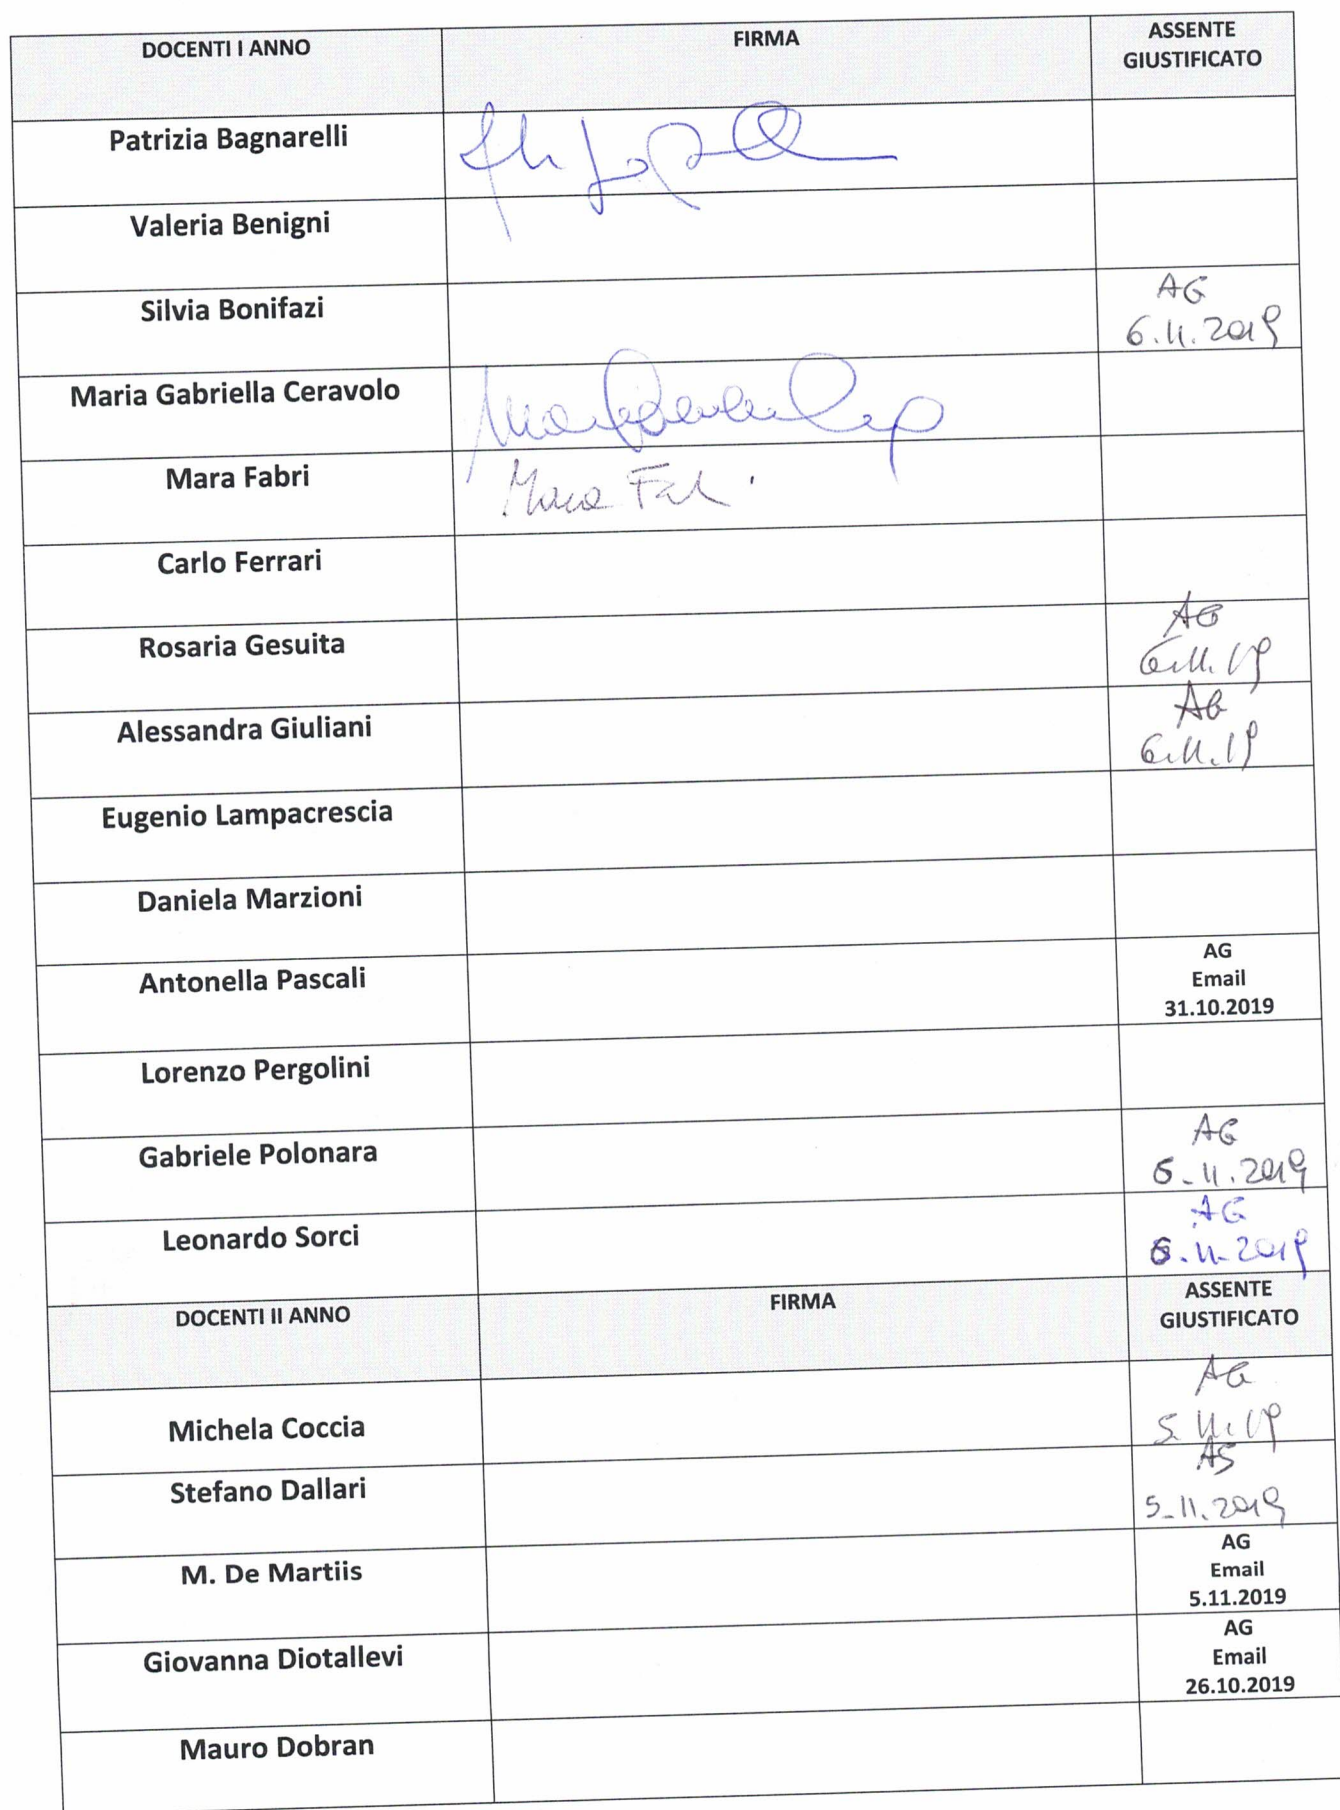 DOCENTI I ANNO FIRMA ASSENTE
GIUSTIFICATO
Patrizia Bagnarelli
Valeria Benigni
Silvia Bonifazi AG
6.11.2019
Maria Gabriella Ceravolo
Mara Fabri Mara
Carlo Ferrari
Rosaria Gesuita AG
6.11.19
Alessandra Giuliani AG
6.11.19
Eugenio Lampacrescia
Daniela Marzioni
Antonella Pascali AG
Email
31.10.2019
Lorenzo Pergolini
Gabriele Polonara AG
6.11.2019
Leonardo Sorci AG
6.11.2019
DOCENTI II ANNO FIRMA ASSENTE
GIUSTIFICATO
Michela Coccia AG
5.11.19
Stefano Dallari
5.11.2019
M. De Martiis AG
Email
5.11.2019
Giovanna Diotallevi AG
Email
26.10.2019
Mauro Dobran